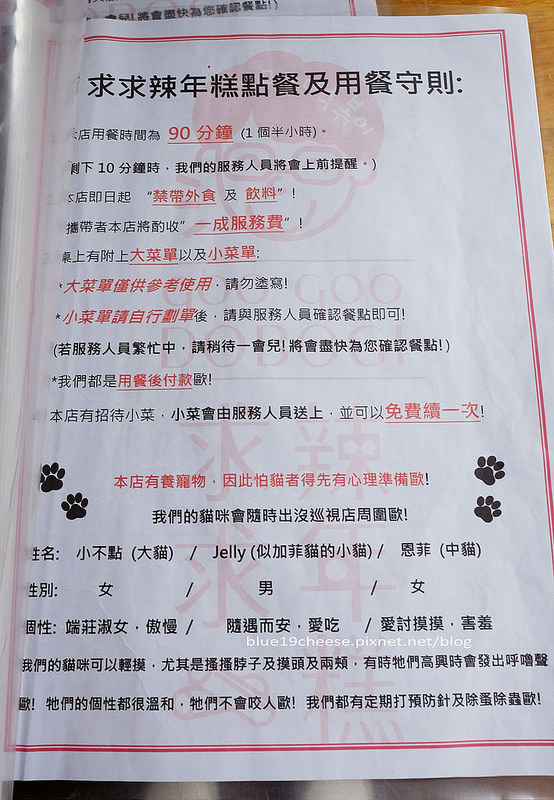 會兒! 將會盡快為您確認餐點!)
求求辣年糕點餐及用餐守則:
本店用餐時間為 90 分鐘 (1 個半小時)。
剩下 10 分鐘時，我們的服務人員將會上前提醒。)
本店即日起 “禁帶外食 及 飲料”！
攜帶者本店將酌收” 一成服務費”！
桌上有附上大菜單以及小菜單:
*大菜單僅供參考使用，請勿塗寫!
*小菜單請自行劃單後，請與服務人員確認餐點即可!
(若服務人員繁忙中，請稍待一會兒! 將會盡快為您確認餐點!)
*我們都是用餐後付款歐!
本店有招待小菜，小菜會由服務人員送上，並可以免費續一次!
GOO GOO
DOBOGI
求求辣年糕
本店有養寵物，因此怕貓者得先有心理準備歐!
我們的貓咪會隨時出沒巡視店周圍歐!
姓名: 小不點 (大貓) / Jelly (似加菲貓的小貓) / 恩菲 (中貓)
性別: 女 / 男 / 女
個性: 端莊淑女，傲慢 / 隨遇而安，愛吃 / 愛討摸摸，害羞
blue19cheese.pixnet.net/blog
我們的貓咪可以輕摸，尤其是搔搔脖子及摸頭及兩頰，有時牠們高興時會發出呼嚕聲
歐! 牠們的個性都很溫和，牠們不會咬人歐! 我們都有定期打預防針及除蚤除蟲歐!